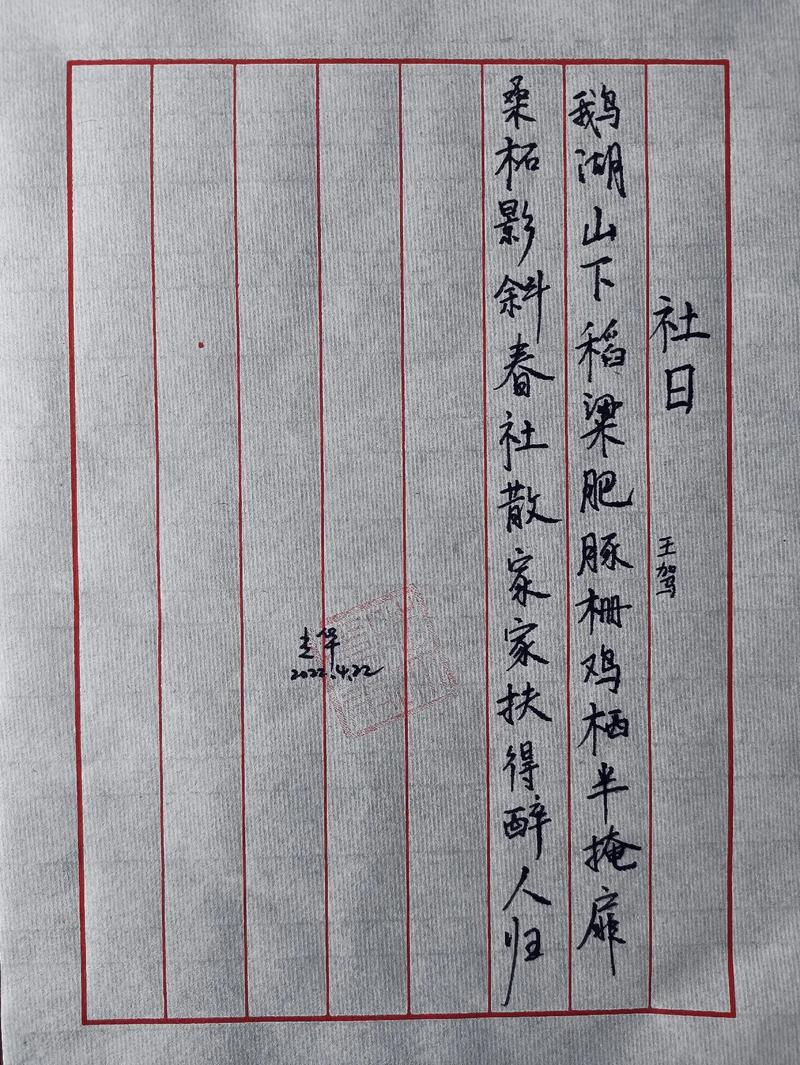 社日
王驾
鹅湖山下稻粱肥豚栅鸡栖半掩扉
桑柘影斜春社散家家扶得醉人归
2022.4.22